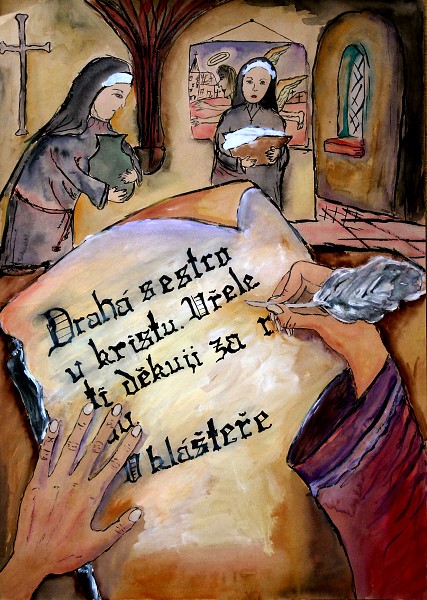 Drahá sestro
v kristu. Vřele
ti děkuji za
V klášteře